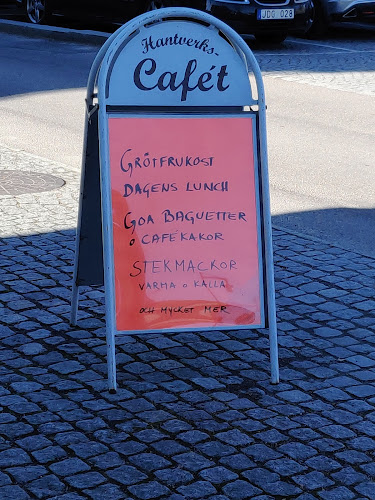 JDO 028
Hantverks-
Cafét
GRÖTFRUKOST
DAGENS LUNCH
GOA BAGUETTER
o CAFÉKAKOR
STEKMACKOR
VARMA o KALLA
OCH MYCKET MER